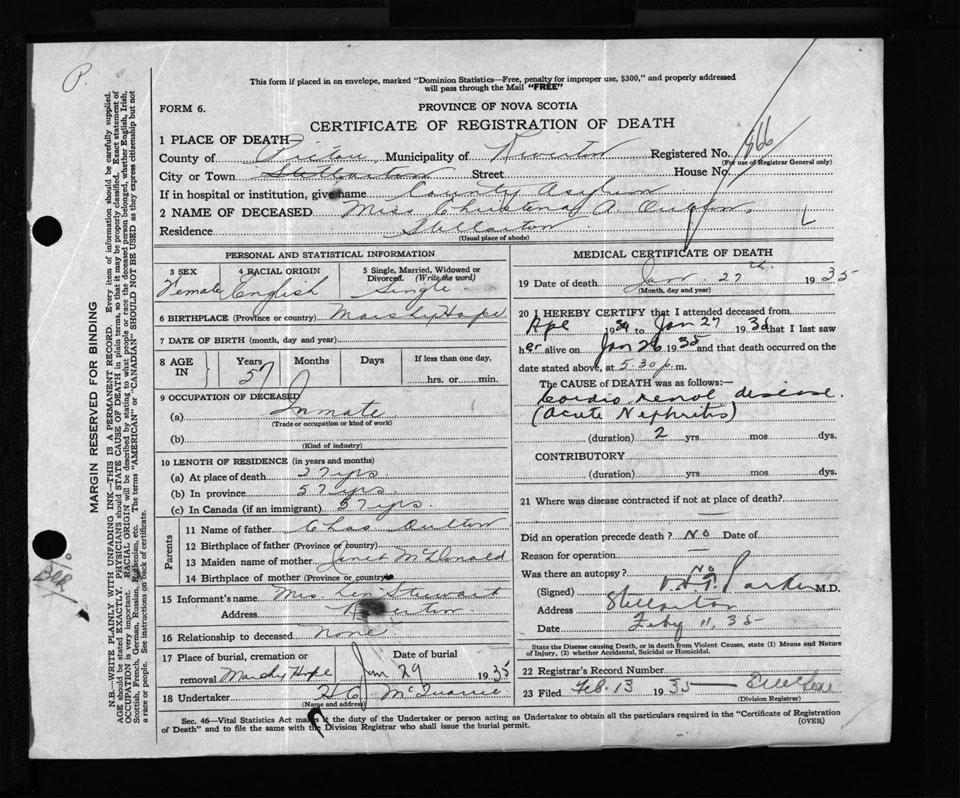 P.
This form if placed in an envelope, marked "Dominion Statistics—Free, penalty for improper use, $300," and properly addressed
will pass through the Mail "FREE"
FORM 6.
PROVINCE OF NOVA SCOTIA
CERTIFICATE OF REGISTRATION OF DEATH
1 PLACE OF DEATH—
County of Pictou Municipality of Riverton Registered No. 566
(For use of Registrar General only)
City or Town Stellarton Street House No.
If in hospital or institution, give name County Asylum
2 NAME OF DECEASED Miss Christena A.
Residence Stellarton
(Usual place of abode)
PERSONAL AND STATISTICAL INFORMATION
3 SEX Female
4 RACIAL ORIGIN English
5 Single, Married, Widowed or Divorced. (Write the word) Single
6 BIRTHPLACE (Province or country) Marshy Hope
7 DATE OF BIRTH (month, day and year)
8 AGE IN Years 57 Months Days If less than one day, hrs. or min.
9 OCCUPATION OF DECEASED
(a) Inmate
(Trade or occupation or kind of work)
(b)
(Kind of industry)
10 LENGTH OF RESIDENCE (in years and months)
(a) At place of death 27 yrs
(b) In province 57 yrs.
(c) In Canada (if an immigrant) 57 yrs.
Parents
11 Name of father Chas Oulton
12 Birthplace of father (Province or country)
13 Maiden name of mother Janet McDonald
14 Birthplace of mother (Province or country)
15 Informant's name Mrs. Len Stewart
Address Riverton
16 Relationship to deceased none
17 Place of burial, cremation or removal Marshy Hope Date of burial Jan 29 1935
18 Undertaker H.C. McQuarrie
(Name and address)
MEDICAL CERTIFICATE OF DEATH
19 Date of death Jan 27th 1935
(Month, day and year)
20 I HEREBY CERTIFY that I attended deceased from
Apl 1934 to Jan 27 1935 that I last saw
her alive on Jan 26 1935 and that death occurred on the
date stated above, at 5.30 p.m.
The CAUSE OF DEATH was as follows:—
Cardio renal disease.
(Acute Nephritis)
(duration) 2 yrs. mos. dys.
CONTRIBUTORY
(duration) yrs. mos. dys.
21 Where was disease contracted if not at place of death?
—
Did an operation precede death? No Date of
Reason for operation —
Was there an autopsy? No
(Signed) Parker M.D.
Address Stellarton
Date Feby 11, 35
State the Disease causing Death, or in death from Violent Causes, state (1) Means and Nature
of Injury, (2) whether Accidental, Suicidal or Homicidal.
22 Registrar's Record Number
23 Filed Feb. 13 1935
(Division Registrar)
Sec. 46—Vital Statistics Act makes it the duty of the Undertaker or person acting as Undertaker to obtain all the particulars required in the "Certificate of Registration
of Death" and to file the same with the Division Registrar who shall issue the burial permit. (OVER)
MARGIN RESERVED FOR BINDING
N.B.—WRITE PLAINLY WITH UNFADING INK—THIS IS A PERMANENT RECORD. Every item of information should be carefully supplied.
AGE should be stated EXACTLY. PHYSICIANS should STATE CAUSE OF DEATH in plain terms, so that it may be properly classified. Exact statement of
OCCUPATION is very important. RACIAL ORIGIN will be described by stating to what people or race the deceased person belonged, whether English, Irish,
Scottish, French, German, Russian, Ruthenian, etc. The terms "AMERICAN" or "CANADIAN" SHOULD NOT BE USED as they express citizenship but not
a race or people. See instructions on back of certificate.